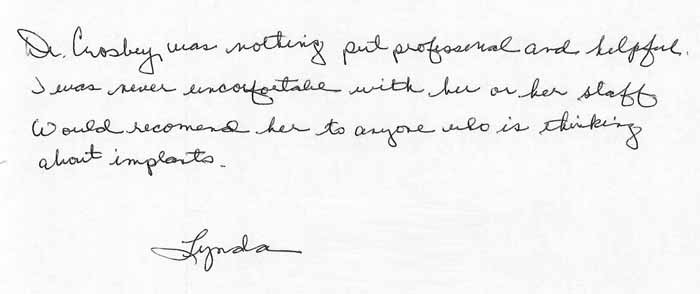 Dr. Crosbey was nothing put professonal and helpful.
I was never uncomfortable with her or her staff
Would recomend her to anyone who is thinking
about implants.
Lynda